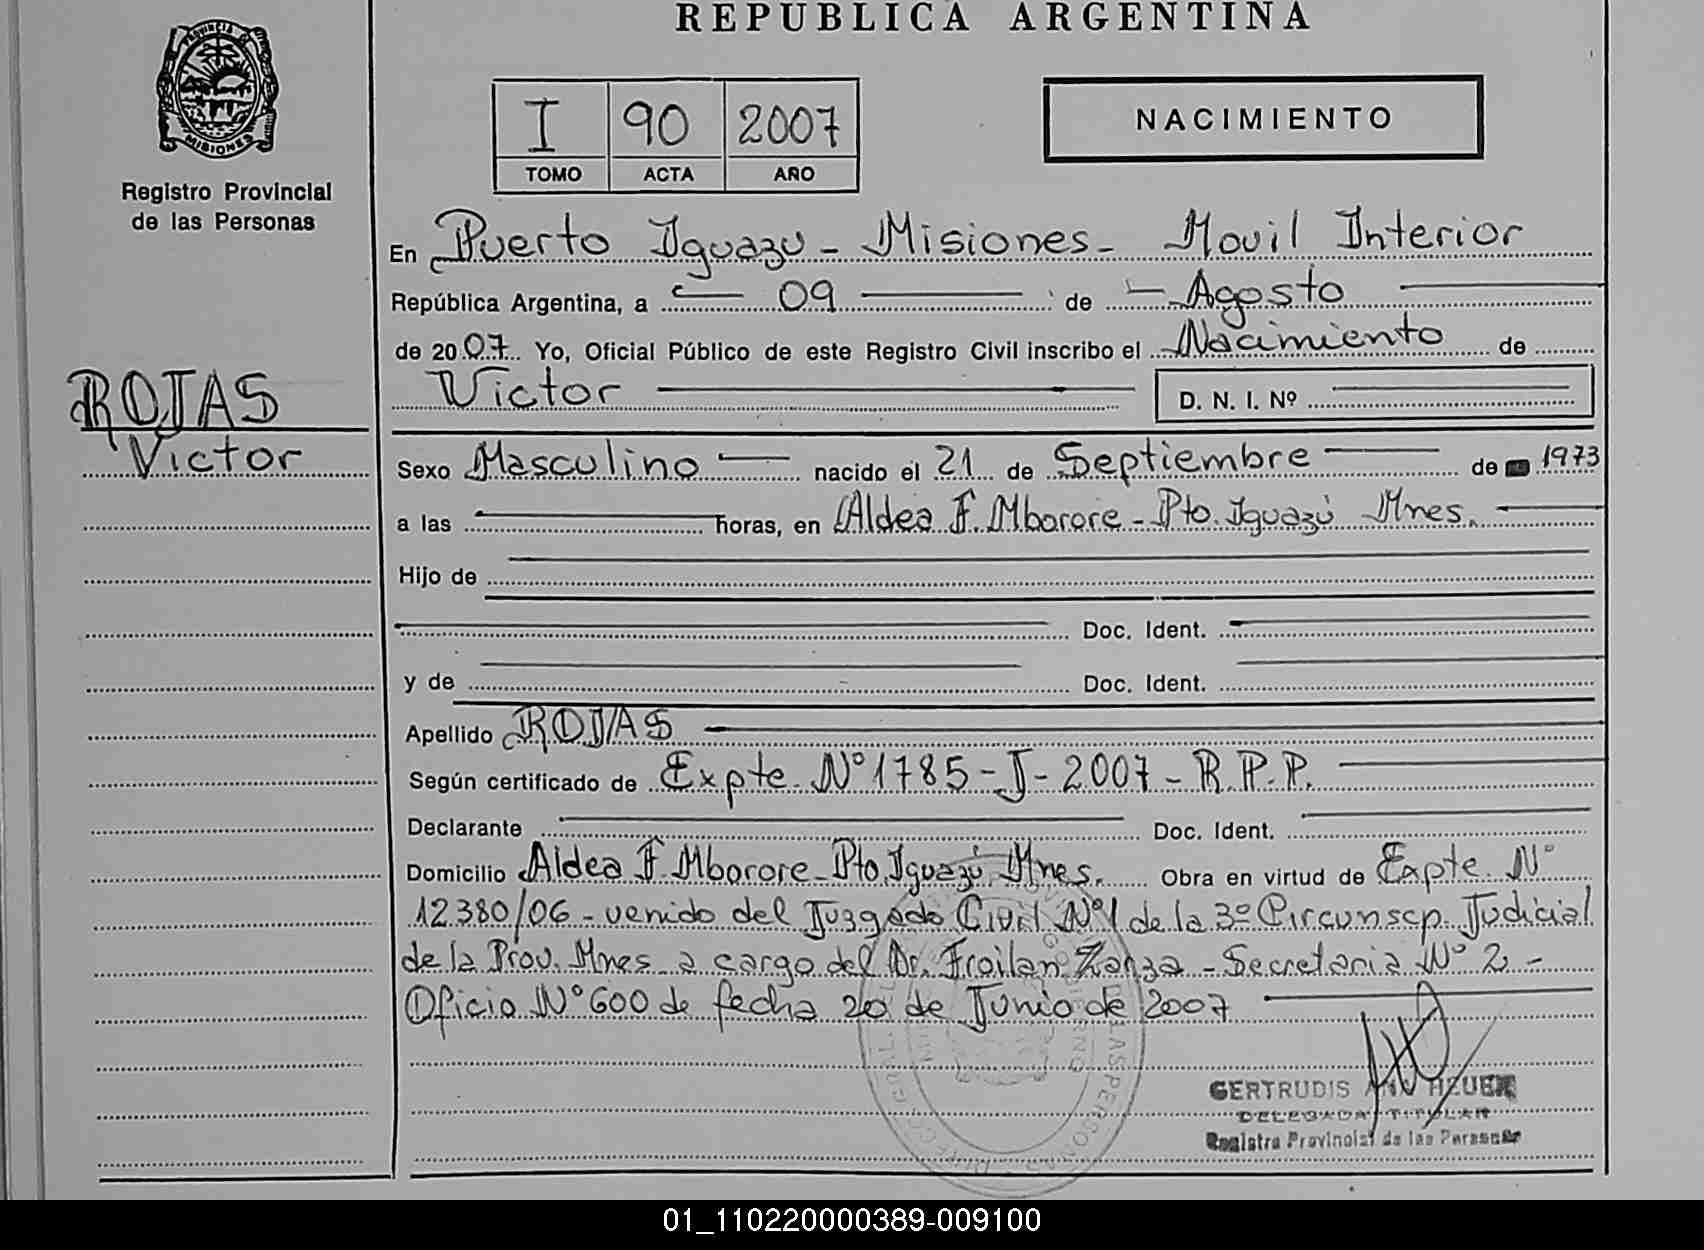 REPUBLICA ARGENTINA
PROVINCIA DE
MISIONES
Registro Provincial
de las Personas
I 90 2007
TOMO ACTA AÑO
NACIMIENTO
En Puerto Iguazu - Misiones - Movil Interior
República Argentina, a 09 de Agosto
de 2007. Yo, Oficial Público de este Registro Civil inscribo el Nacimiento de
Victor D. N. I. Nº
ROJAS
Victor
Sexo Masculino nacido el 21 de Septiembre de 1973
a las horas, en Aldea F. Mborore - Pto. Iguazú Mnes.
Hijo de
Doc. Ident.
y de Doc. Ident.
Apellido ROJAS
Según certificado de Expte. Nº 1785 - J - 2007 - R.P.P.
Declarante Doc. Ident.
Domicilio Aldea F. Mborore - Pto. Iguazú Mnes. Obra en virtud de Expte. Nº
12380/06 - venido del Juzgado Civil Nº1 de la 3º Circunscp. Judicial
de la Prov. Mnes - a cargo del Dr. Froilan Zarza - Secretaria Nº 2 -
Oficio Nº 600 de fecha 20 de Junio de 2007
GERTRUDIS
DELEGADA TITULAR
Registro Provincial de las Personas
01_110220000389-009100